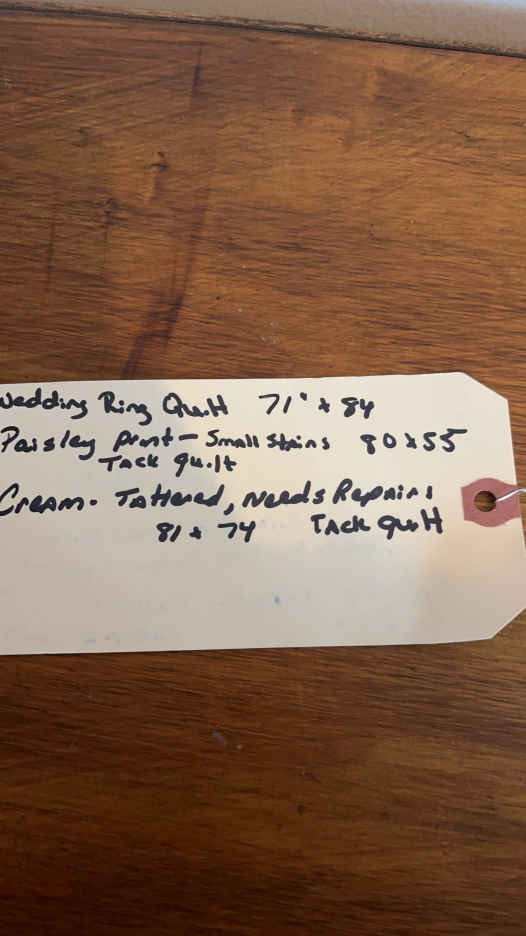 Wedding Ring Quilt 71" x 84
Paisley print - Small stains 80x55
Tack quilt
Cream. Tattered, needs Repairs
81 x 74 Tack quilt